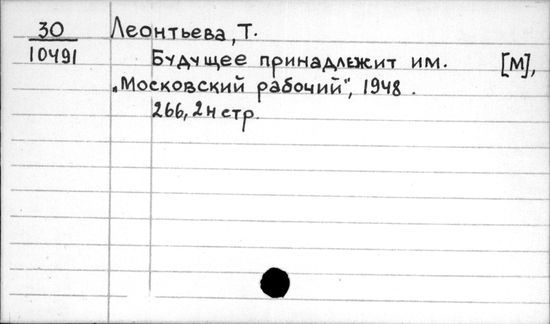 30 Леонтьева, Т.
10491
Будущее принадлежит им. [М],
„Московский рабочий", 1948.
266, 2 н стр.